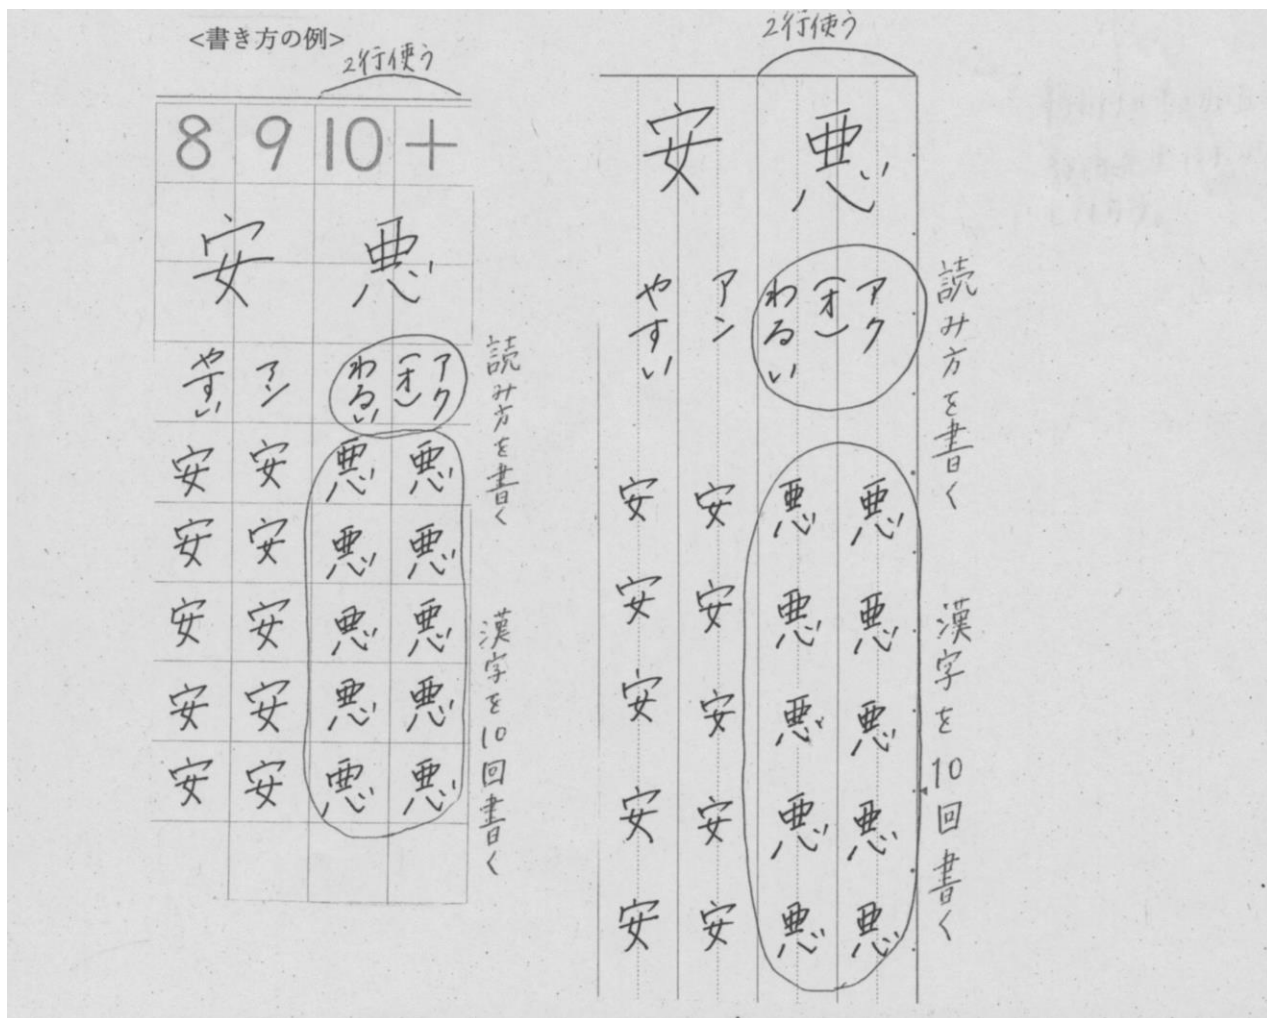 <書き方の例>
2行使う
8 9 10 +
安 悪
アク
(オ)
わるい
アン
やすい
読み方を書く
安 安 悪 悪
安 安 悪 悪
安 安 悪 悪
安 安 悪 悪
安 安 悪 悪
漢字を10回書く
2行使う
安 悪
アク
(オ)
わるい
アン
やすい
読み方を書く
安 安 悪 悪
安 安 悪 悪
安 安 悪 悪
安 安 悪 悪
安 安 悪 悪
漢字を10回書く